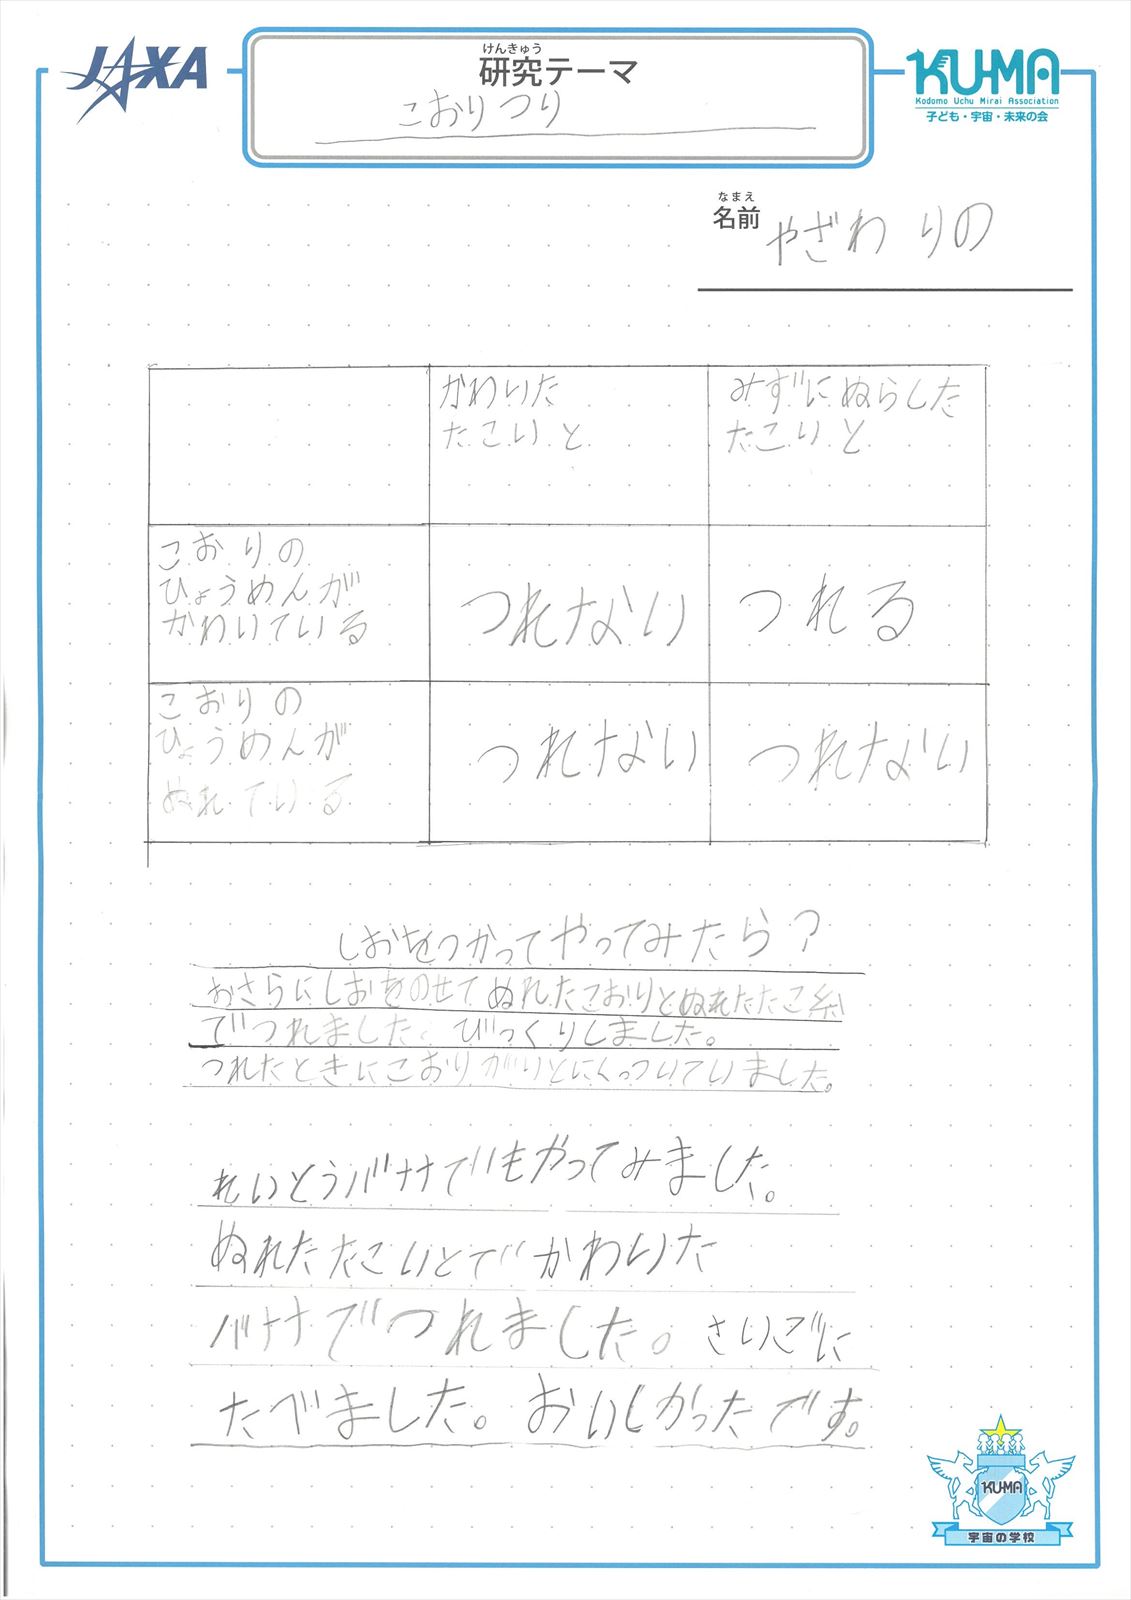 JAXA
けんきゅう
研究テーマ
こおりつり
KU-MA
Kodomo Uchu Mirai Association
子ども・宇宙・未来の会
なまえ
名前
やざわ りの
かわいた
たこいと
みずにぬらした
たこいと
こおりの
ひょうめんが
かわいている
つれない
つれる
こおりの
ひょうめんが
ぬれている
つれない
つれない
しおをつかってやってみたら?
おさらにしおをのせてぬれたこおりとぬれたたこ糸
でつれました。びっくりしました。
つれたときにこおりがいとにくっついていました。
れいとうバナナでもやってみました。
ぬれたたこいとでかわいた
バナナでつれました。さいごに
たべました。おいしかったです。
KU-MA
宇宙の学校